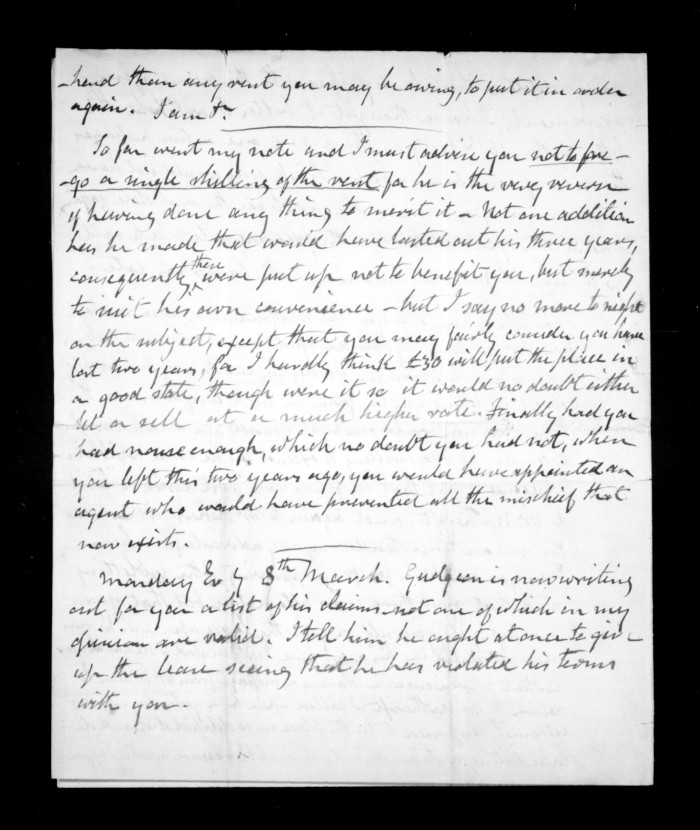 -hend than any rent you may be owing, to put it in order
again. I am &c
So far went my note and I must advise you not to fore-
-go a single shilling of the rent for he is the very reverse
of having done any thing to merit it - Not one addition
has he made that would have lasted out his three years,
consequently these were put up not to benefit you, but merely
to suit his own convenience - but I say no more to night
on the subject, except that you may fairly consider you have
lost two years, for I hardly think £30 will put the place in
a good state, though were it so it would no doubt either
let or sell at a much higher rate. Finally had you
had nouse enough, which no doubt you had not, when
you left this two years ago, you would have appointed an
agent who would have prevented all the mischief that
now exists.
Monday Evg 8th March. Gudgeon is now writing
out for you a list of his claims not one of which in my
opinion are valid. I tell him he ought at once to give
up the lease seeing that he has violated his terms
with you.